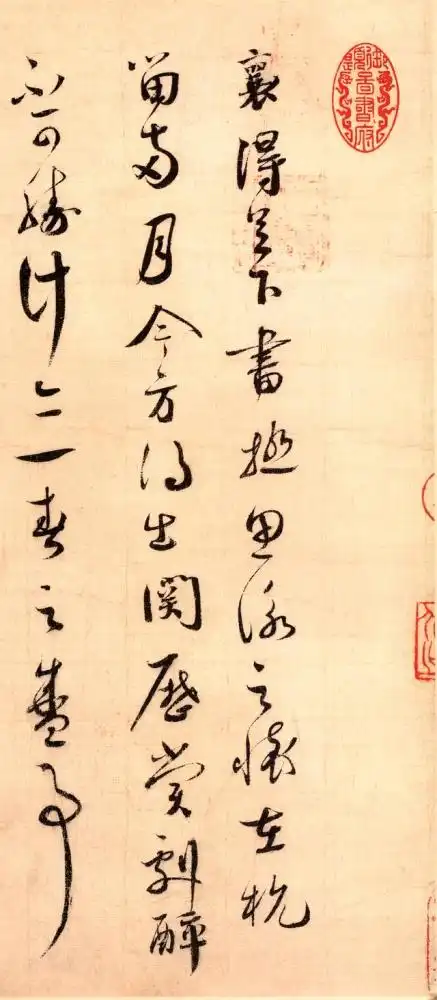 襄得足下書極思詠之懷在杭
留兩月今方得出関歷賞劇醉
不可勝計亦一春之盛事